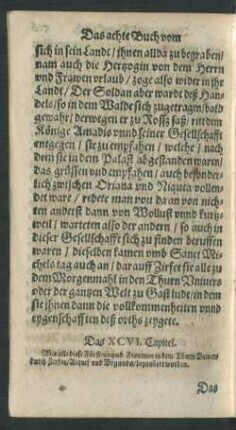 Das achte Buch vom
sich in sein Landt / ihnen allda zu begraben /
nam auch die Hertzogin von dem Herrn
und Frawen urlaub / zoge also wider in ihr
Landt / Der Soldan aber wardt deß Han-
dels / so in dem Walde sich zugetragen / bald
gewahr / derwegen er zu Rossz saß / ritt dem
Könige Amadis vnnd seiner Gesellschafft
entgegen / sie zu empfahen / welche / nach
dem sie in dem Palast abgestanden waren /
das grüssen und empfahen / auch besonder-
lich zwischen Oriana und Niquea vollen-
det ware / redete man von da an von nichs
ten anderst dann von Wollust vnnd kurtz-
weil / warteten also der andern / so auch in
dieser Gesellschafft sich zu finden beruffen
waren / dieselben kamen vmb Sanct Mi-
chels tag auch an / darauff Zirfee sie alle zu
dem Morgenmahl in den Thurn Vniuers
oder der gantzen Welt zu Gast lude / in dem
sie jhnen dann die vollkommenheiten vnnd
eygenschafften deß orths zeygete.
Das XCVI. Capitel.
Wie alle diese Fürsten vnnd Frawen in dem Thurn Vniuers
durch Zirfee / Alquif vnd Vrganda / bezaubert wurden.
Das